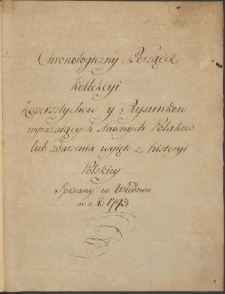 Chronologiczny Porządek
Kollekcyi
Kopersztychow y Rysunkow
wyrażaiących sławnych Polakow
lub zdarzenia wyięte z historyi
Polskiey
Spisany w Wiedniu
w R. 1793